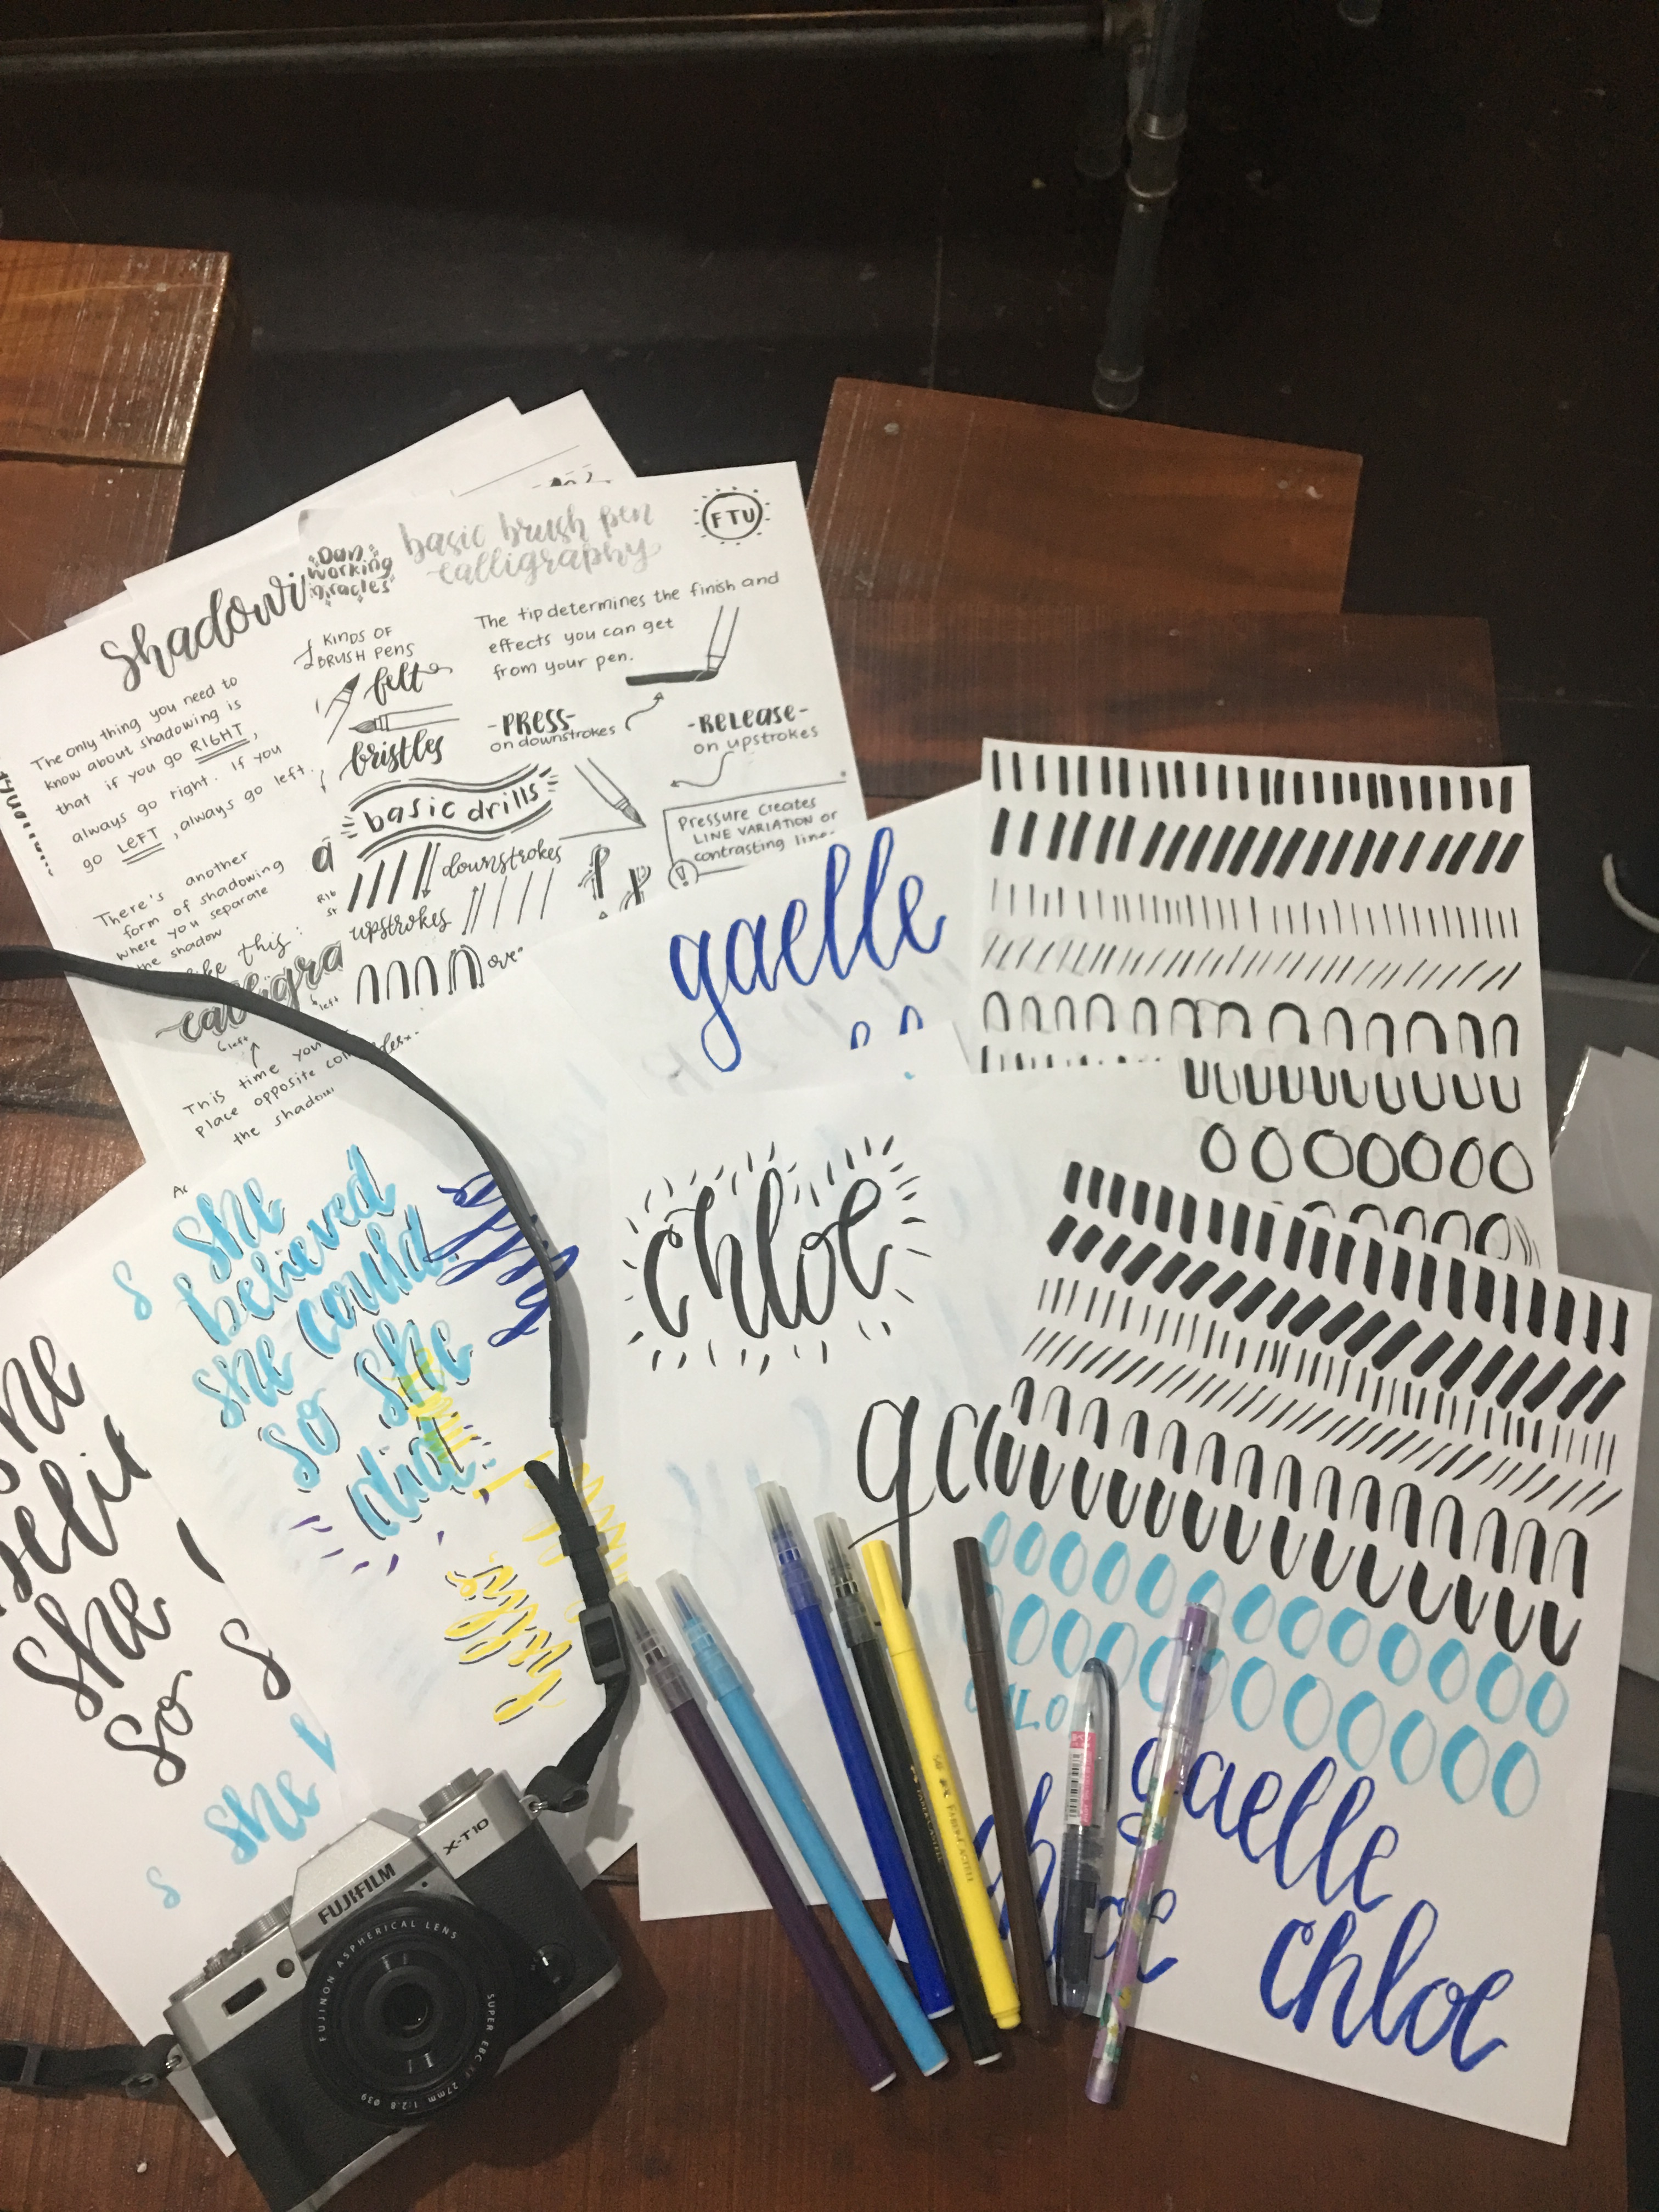 Shadowi
The only thing you need to
know about shadowing is
that if you go RIGHT,
always go right. If you
go LEFT, always go left.
There's another
form of shadowing
where you separate
the shadow
like this:
calligra
left
left
This time you
place opposite
the shadow
Dan
Working
Miracles
basic brush pen
calligraphy
FTU
2 KINDS OF
BRUSH PENS
felt
bristles
The tip determines the finish and
effects you can get
from your pen.
-PRESS-
on downstrokes
-RELEASE-
on upstrokes
basic drills
Pressure creates
LINE VARIATION or
contrasting line
downstrokes
upstrokes
over
gaelle
chloe
ga
she
believed
she could.
so she
did.
s
she
she
so
s
she
s
gaelle
chloe
chloe
FABER-CASTELL
FUJIFILM
X-T10
FUJINON ASPHERICAL LENS
SUPER EBC XF 27mm 1:2.8 Ø39